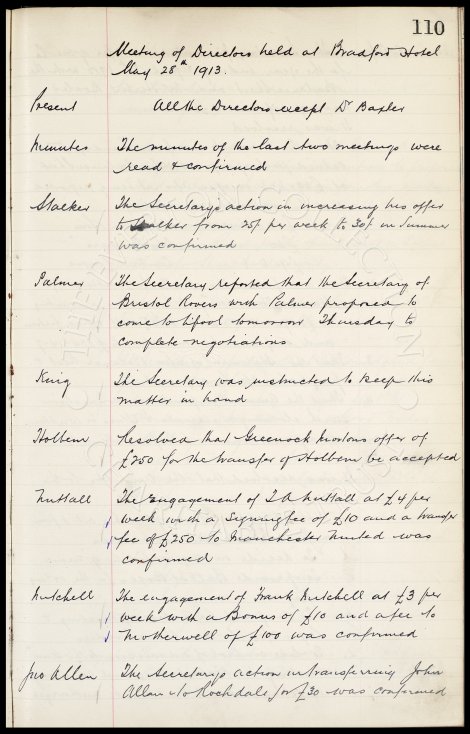 110
Meeting of Directors held at Bradford Hotel
May 28th 1913.
Present All the Directors except Dr Baxter
Minutes The minutes of the last two meetings were
read & confirmed
Stalker The Secretary's action in increasing his offer
to Stalker from 25/- per week to 30/- in Summer
was confirmed
Palmer The Secretary reported that the Secretary of
Bristol Rovers with Palmer proposed to
come to L'pool tomorrow Thursday to
complete negotiations
King The Secretary was instructed to keep this
matter in hand
Holbem Resolved that Greenock Mortons offer of
£250 for the transfer of Holbem be accepted
Nuttall The Engagement of T A Nuttall at £4 per
week with a Signing fee of £10 and a transfer
fee of £250 to Manchester United was
confirmed
Mitchell The engagement of Frank Mitchell at £3 per
week with a Bonus of £10 and a fee to
Motherwell of £100 was confirmed
Jno Allan The Secretarys action in transferring John
Allan to Rochdale for £30 was confirmed